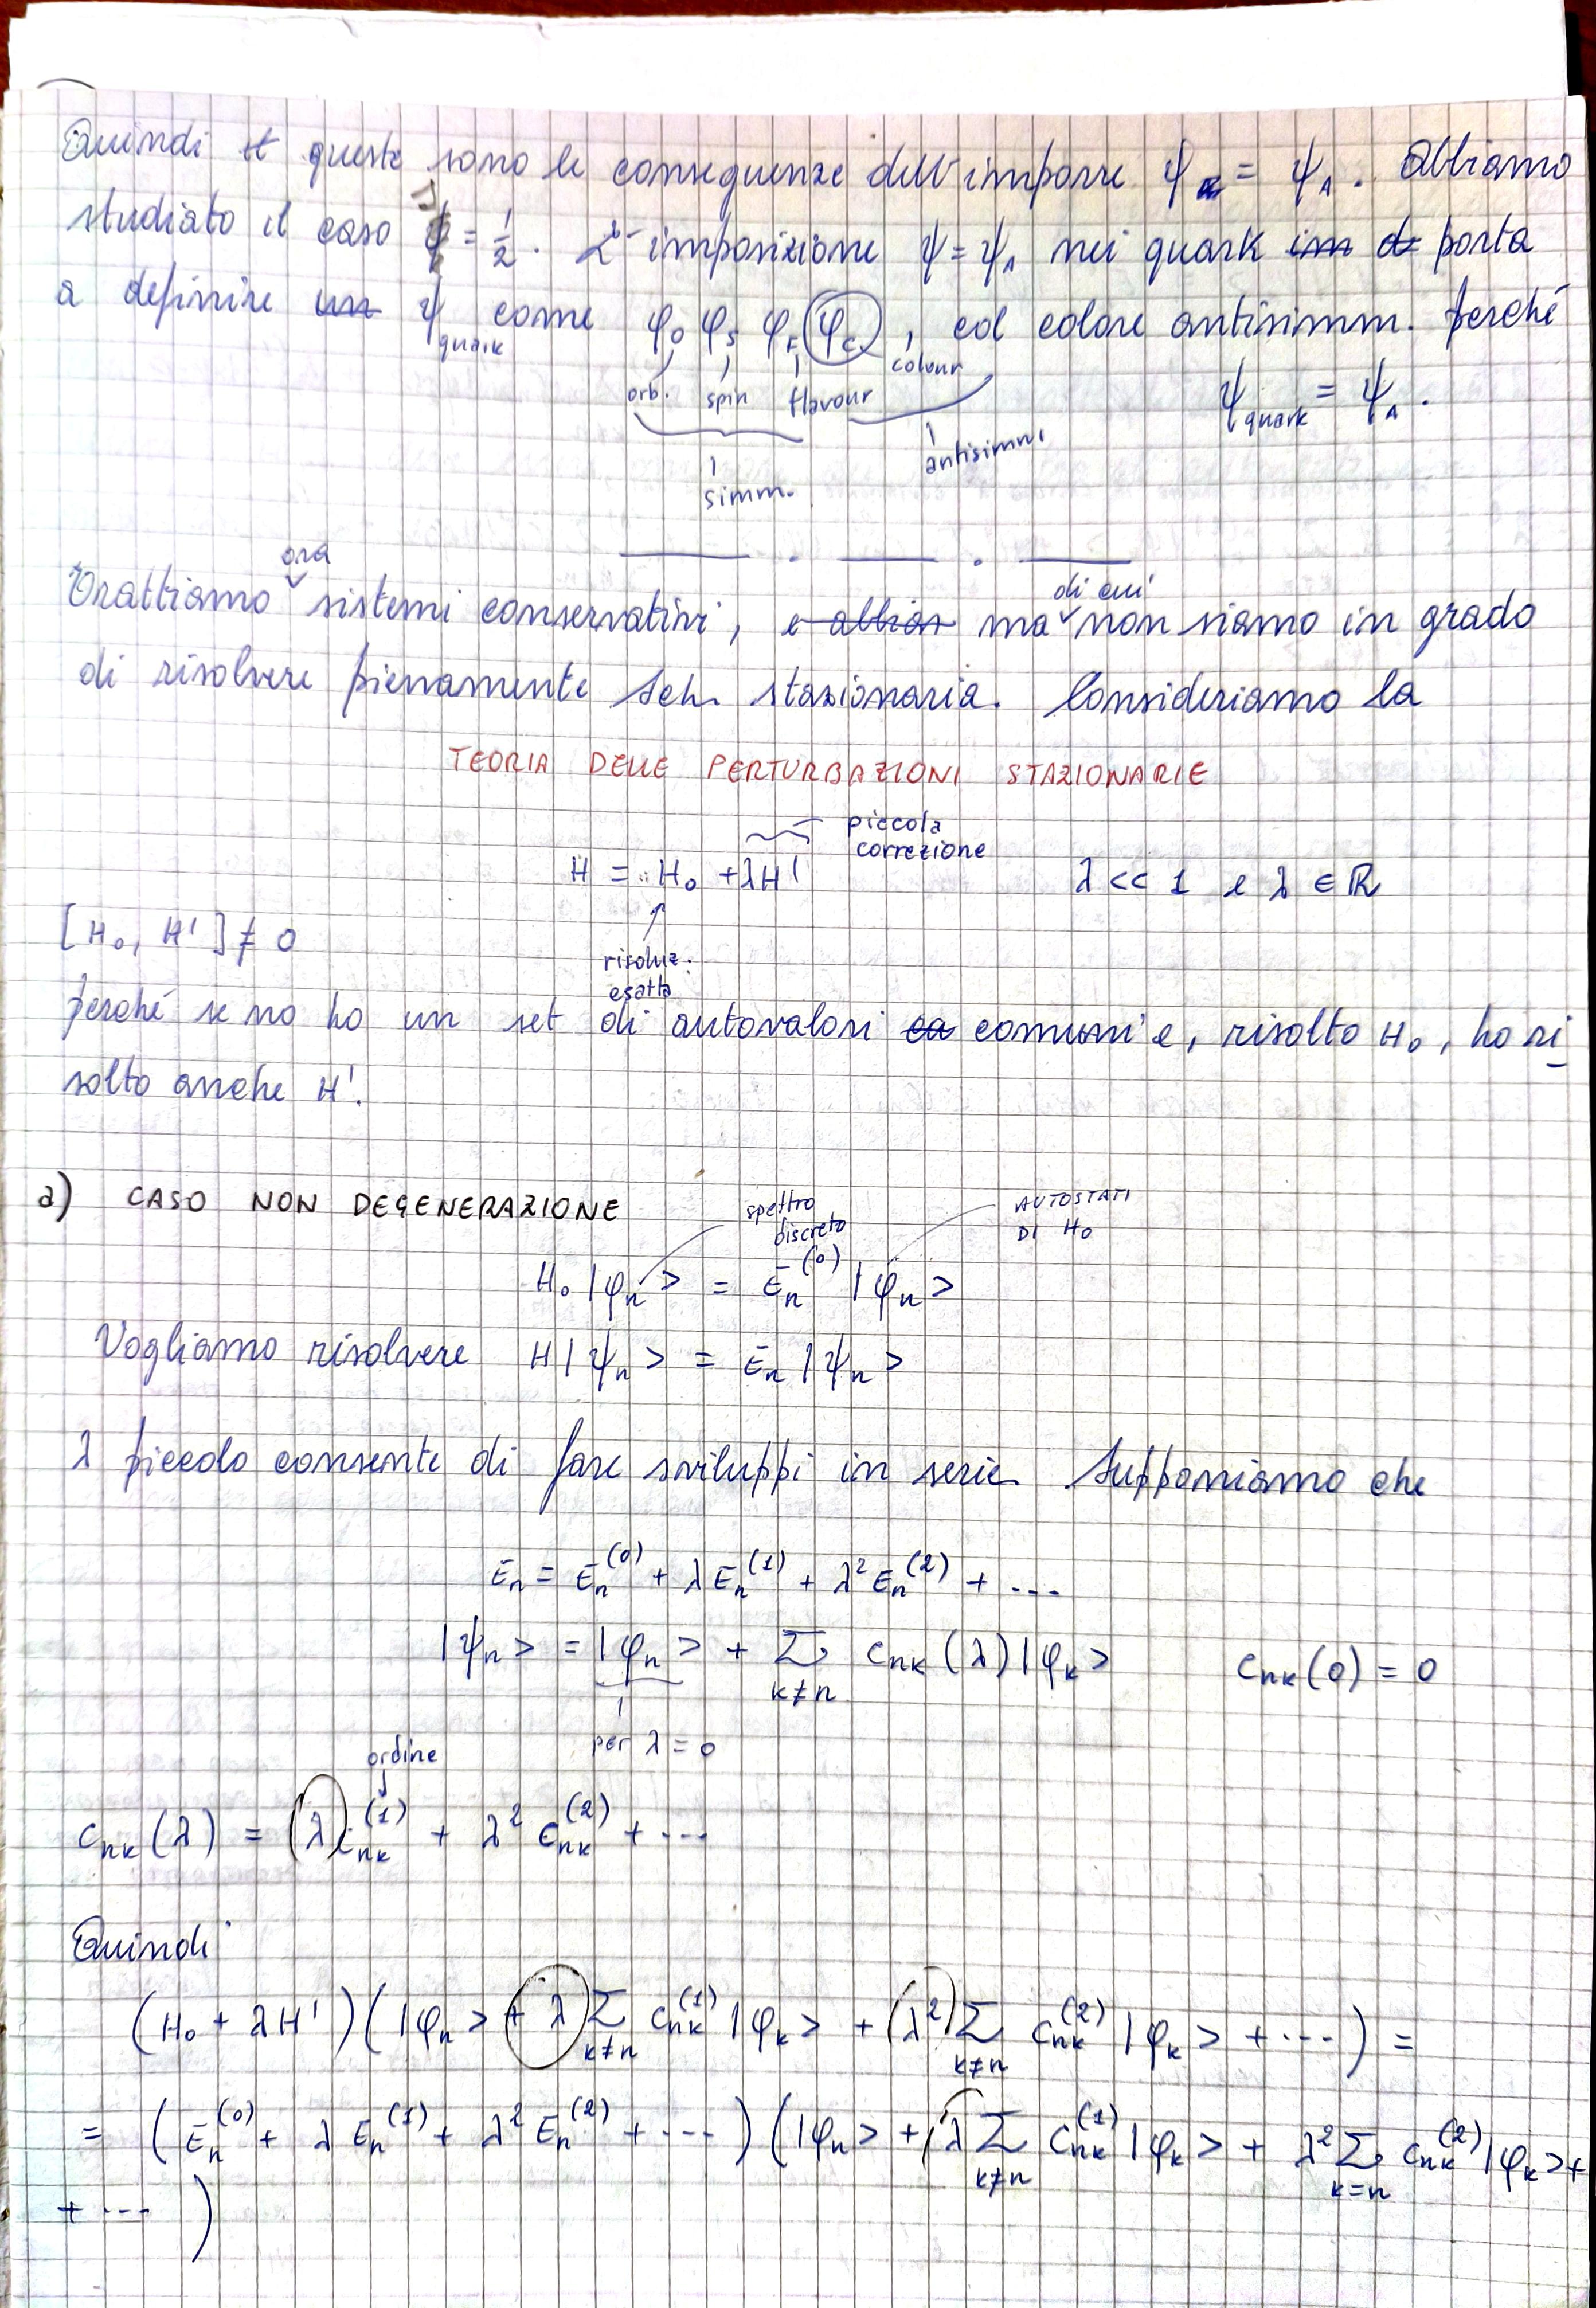 Quindi queste sono le conseguenze dell'imporre ψ = ψ_A. Abbiamo
studiato il caso = 1/2. L'imposizione ψ = ψ_A nei quark porta
a definire ψ_quark come φ_O φ_S φ_F φ_C, col colore antisimm. perché
orb. spin flavour colour
ψ_quark = ψ_A.
simm. antisimm.
Trattiamo ora sistemi conservativi, ma di cui non siamo in grado
di risolvere pienamente Sch. stazionaria. Consideriamo la
TEORIA DELLE PERTURBAZIONI STAZIONARIE
piccola
correzione
H = H₀ + λH' λ << 1 e λ ∈ ℝ
[H₀, H'] ≠ 0
risoluz.
esatta
perché se no ho un set di autovalori comuni e, risolto H₀, ho ri
solto anche H'.
a) CASO NON DEGENERAZIONE
spettro
discreto
AUTOSTATI
DI H₀
H₀ |φ_n> = E_n^(0) |φ_n>
Vogliamo risolvere H|ψ_n> = E_n |ψ_n>
λ piccolo consente di fare sviluppi in serie. Supponiamo che
E_n = E_n^(0) + λ E_n^(1) + λ² E_n^(2) + ...
|ψ_n> = |φ_n> + Σ_{k≠n} c_nk(λ)|φ_k> c_nk(0) = 0
per λ = 0
ordine
c_nk(λ) = λ c_nk^(1) + λ² c_nk^(2) + ...
Quindi
(H₀ + λH')(|φ_n> + λ Σ_{k≠n} c_nk^(1) |φ_k> + λ² Σ_{k≠n} c_nk^(2) |φ_k> + ...) =
= (E_n^(0) + λ E_n^(1) + λ² E_n^(2) + ...)(|φ_n> + λ Σ_{k≠n} c_nk^(1) |φ_k> + λ² Σ_{k=n} c_nk^(2) |φ_k> +
+ ...)